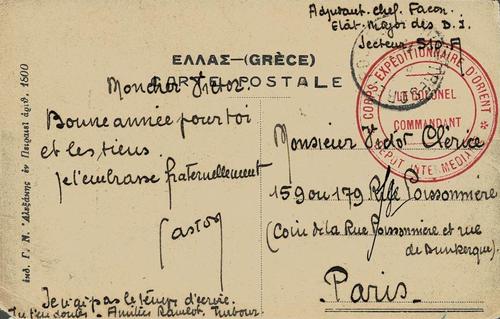 Adjudant-chef Facon.
Etat-Major des D. I.
Secteur 510 A
ΕΛΛΑΣ—(GRÈCE)
CARTE POSTALE
CORPS EXPÉDITIONNAIRE D'ORIENT
LT COLONEL
COMMANDANT
DÉPOT INTERMEDIAIRE
Mon cher Victor.
Bonne année pour toi
et les tiens
je t'embrasse fraternellement
Gaston
Je n'ai pas le temps d'écrire.
tu t'en doutes - Amitiés
Monsieur Victor Clérice
159 ou 179 Rue Poissonnière
(Coin de la Rue Poissonnière et rue
de Dunkerque).
Paris.
ἐκδ. Γ. Ν. Ἀλεξάκης ἐν Πειραιεῖ ἀριθ. 1800